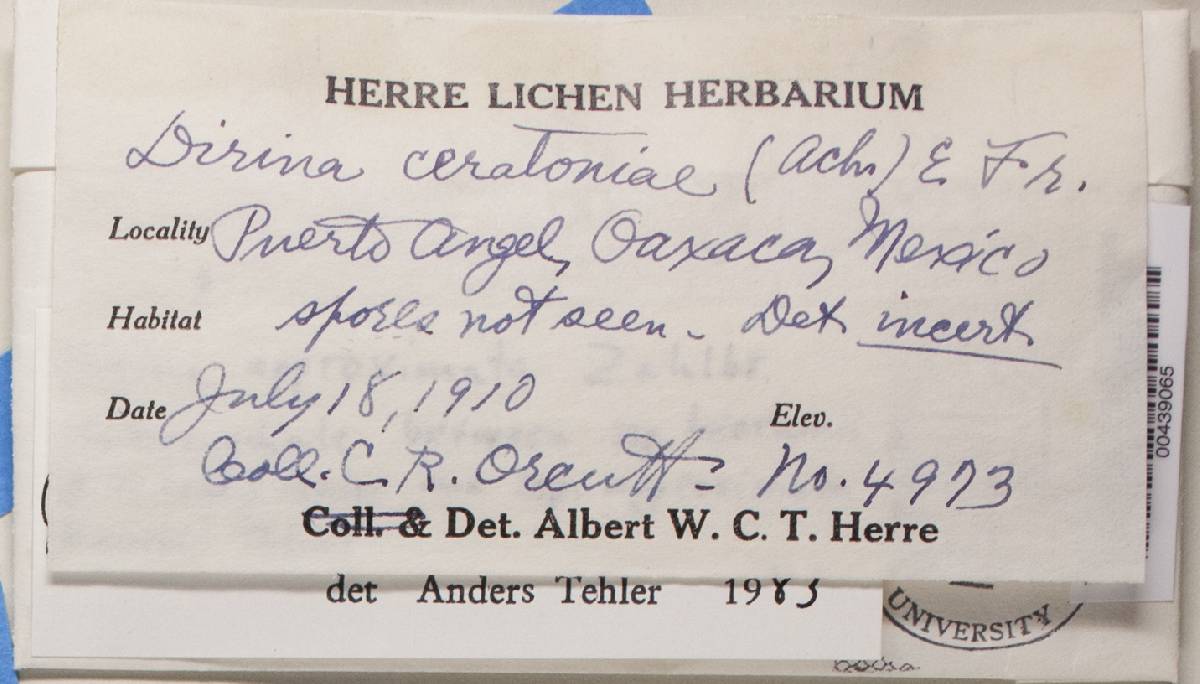 HERRE LICHEN HERBARIUM
Dirina ceratoniae (Ach.) E Fr.
Locality Puerto Angel, Oaxaca, Mexico
Habitat spores not seen - Det incert
Date July 18, 1910 Elev.
Coll. C. R. Orcutt - No. 4973
Coll. & Det. Albert W. C. T. Herre
det Anders Tehler 1983
UNIVERSITY
00439065